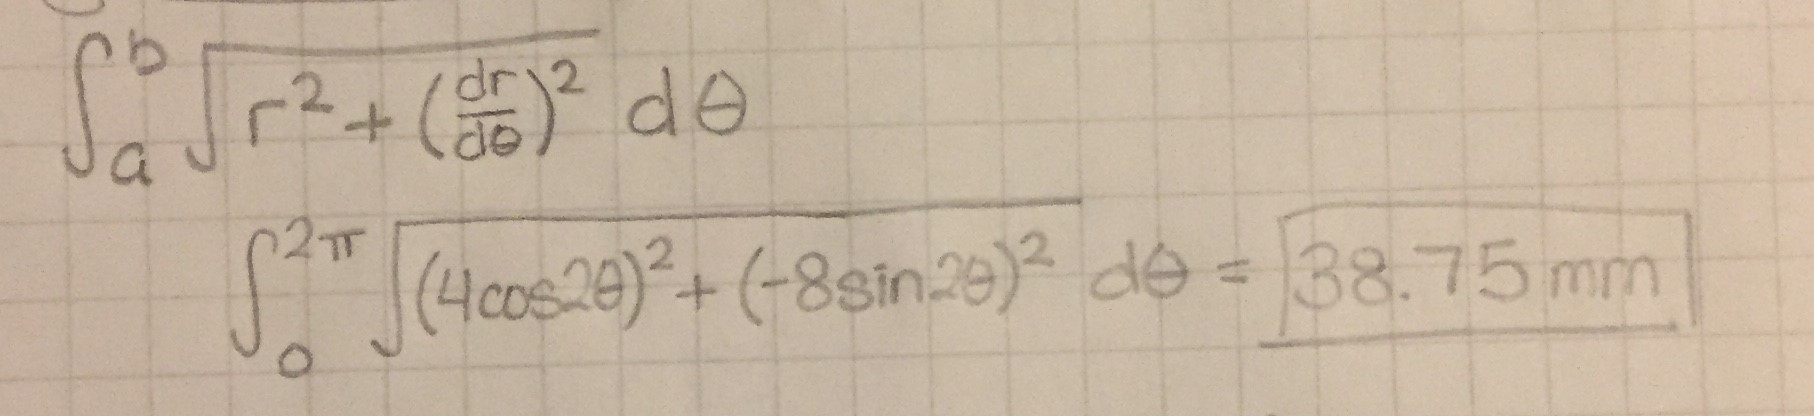 ∫_a^b √(r² + (dr/dθ)²) dθ
∫_0^2π √((4cos2θ)² + (-8sin2θ)²) dθ = 38.75mm